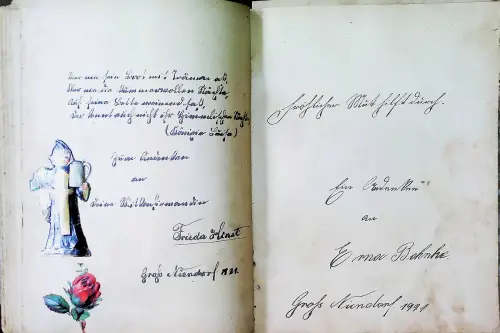 Wer nie sein Brot mit Tränen aß,
Wer nie die kummervollen Nächte,
Auf seine Bette weinend saß,
Der kennt euch nicht ihr himmlischen Mächte.
(Königin Luise)
Zum Andenken
an
deine Mitkonfirmandin
Frieda
Groß Niendorf 1921.
Fröhlicher Mut hilft durch.
Ein Andenken
an
Erna Behnke.
Groß Niendorf 1921